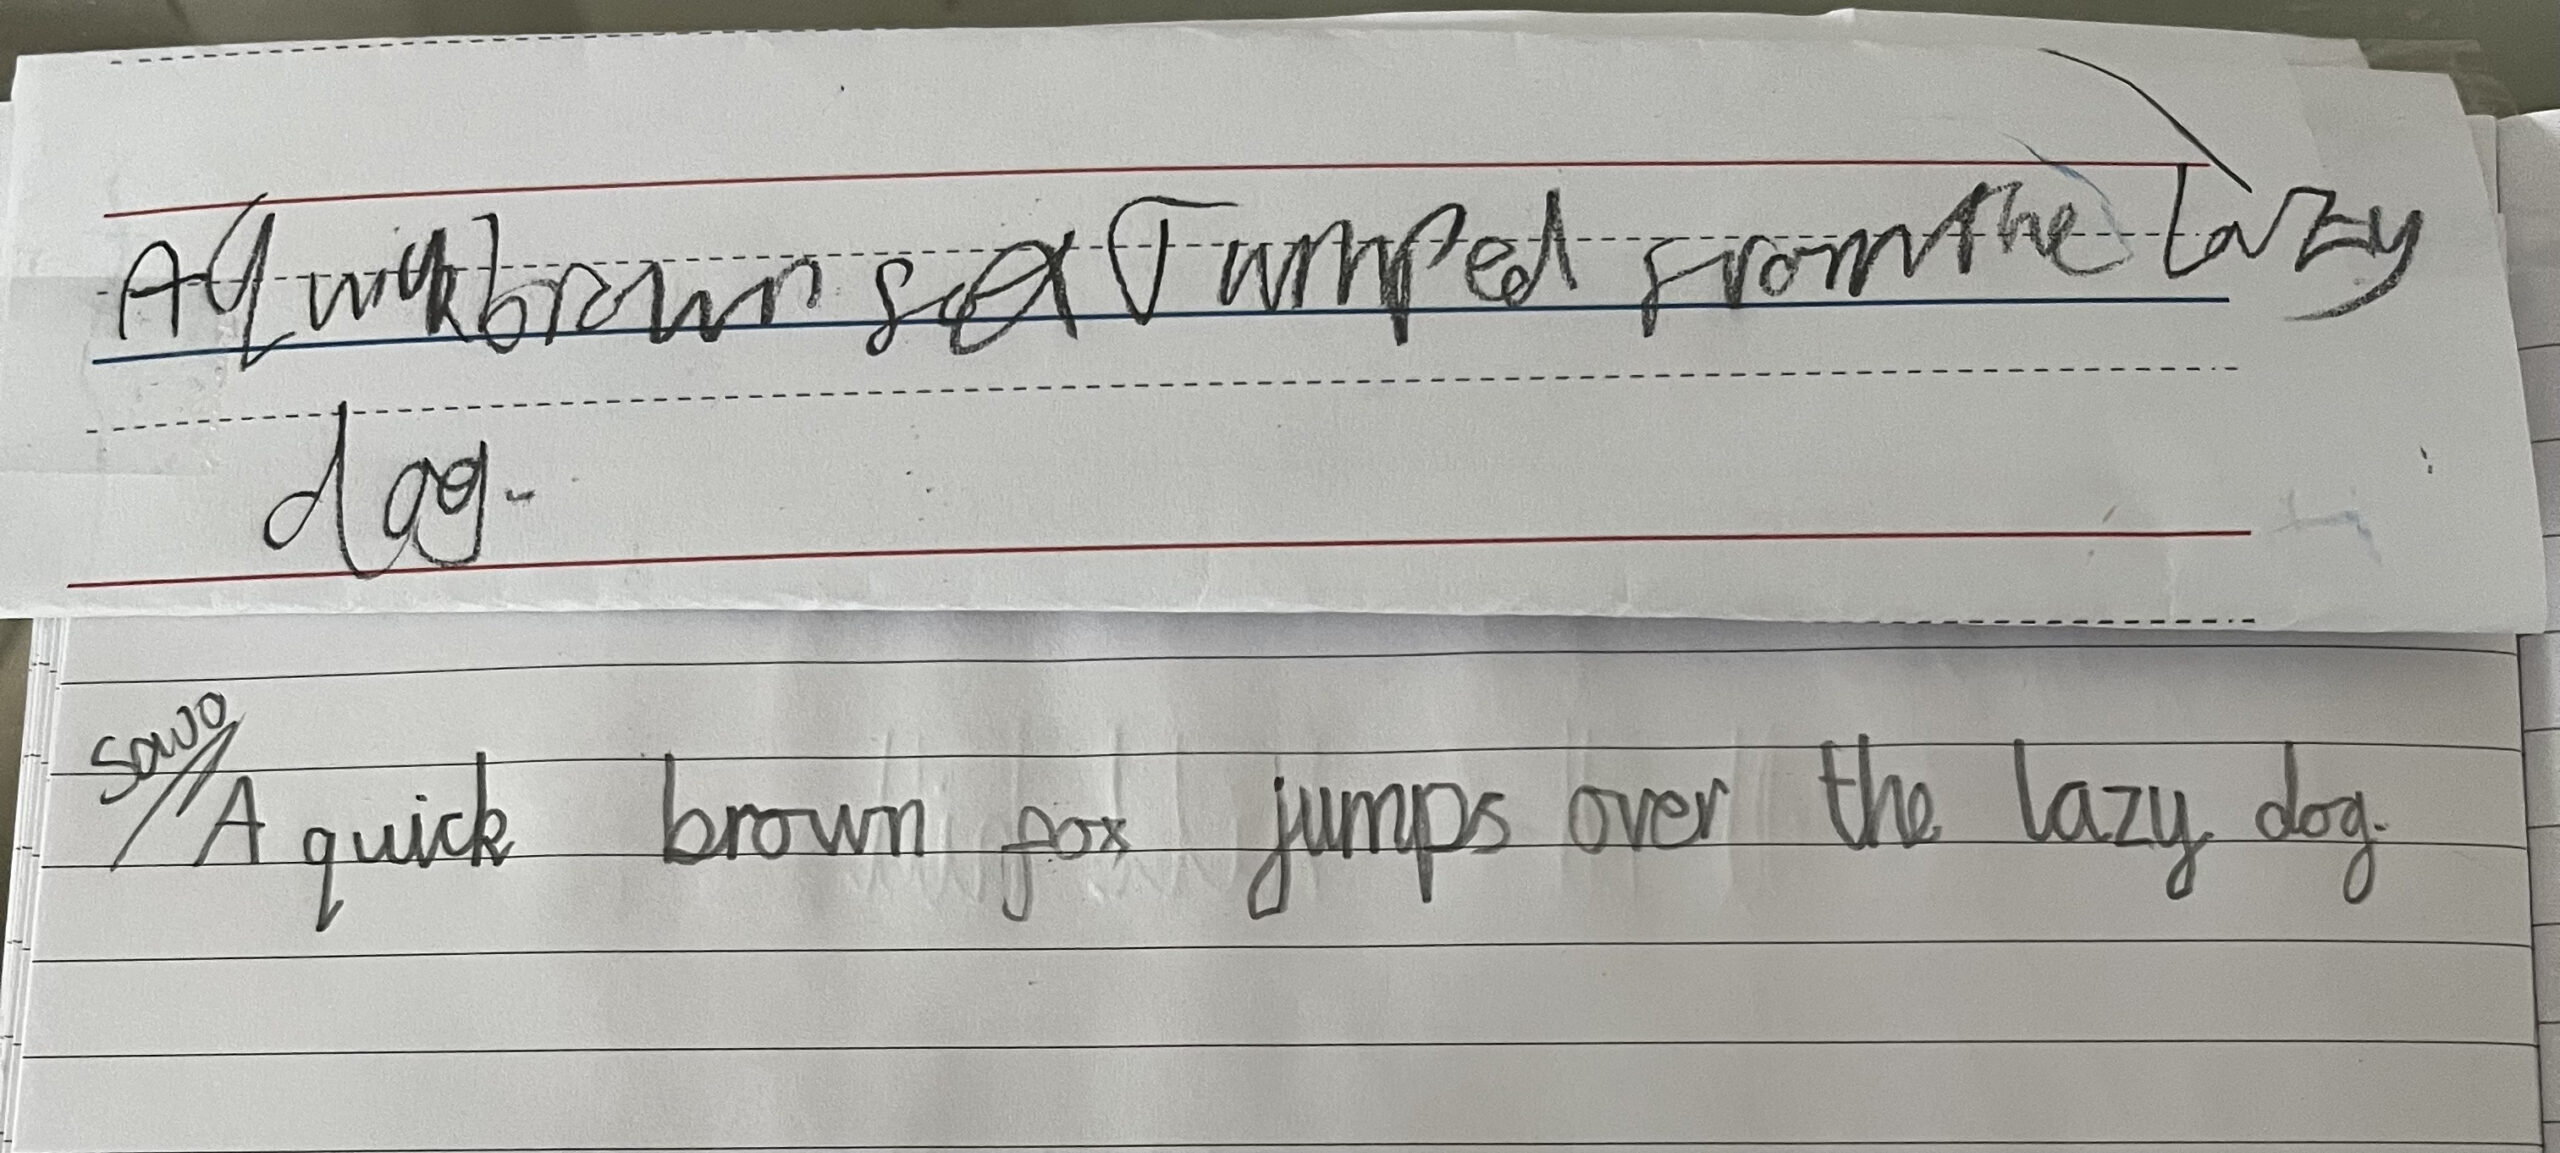 A quick brown fox Jumped from the lazy
dog.
A quick brown fox jumps over the lazy dog.